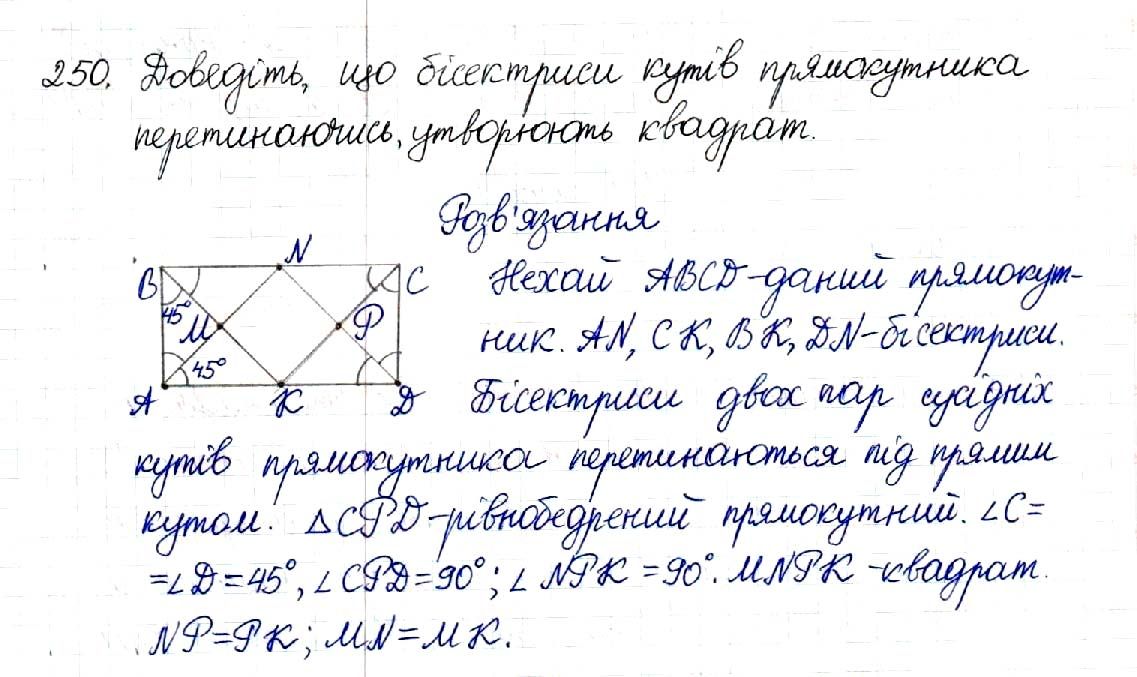 250. Доведіть, що бісектриси кутів прямокутника
перетинаючись, утворюють квадрат.
Розв'язання
N
B
C
45°
M
P
45°
A
K
D
Нехай ABCD-даний прямокут-
ник. AN, CK, BK, DN-бісектриси.
Бісектриси двох пар сусідніх
кутів прямокутника перетинаються під прямим
кутом. △CPD-рівнобедрений прямокутний. ∠C=
=∠D=45°, ∠CPD=90°; ∠NPK=90°. MNPK-квадрат.
NP=PK; MN=MK.